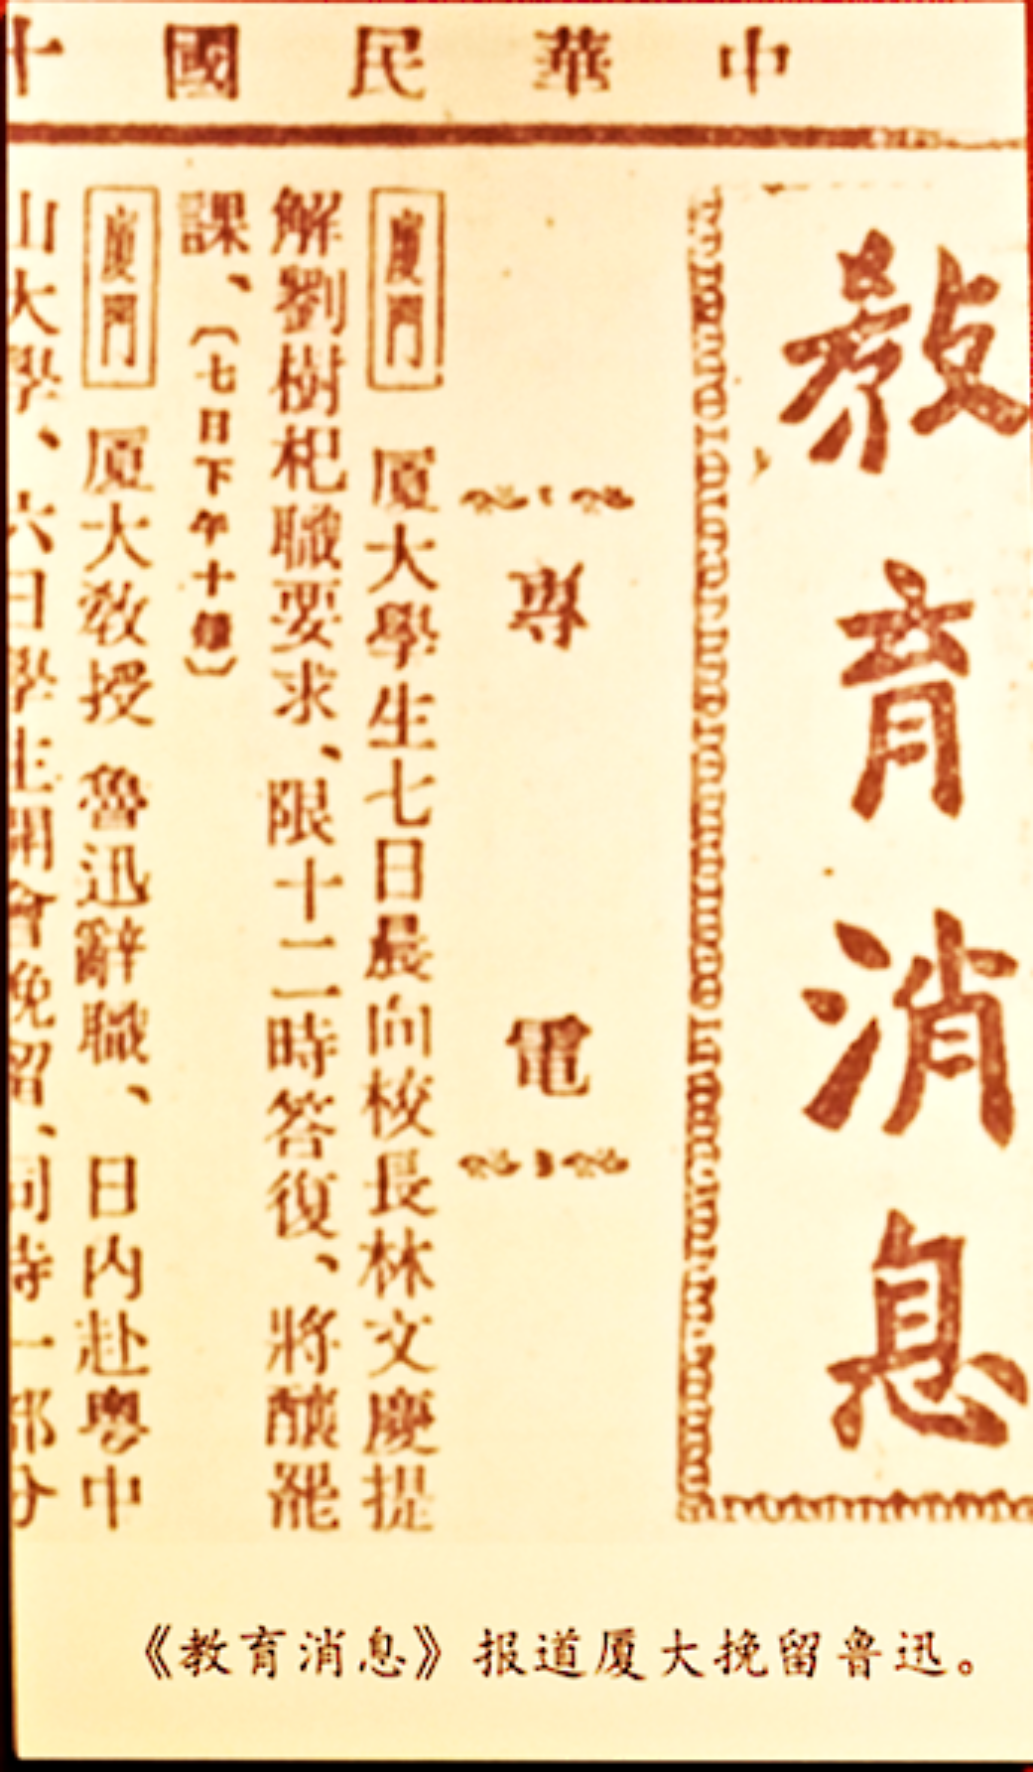 中華民國十
教育消息
專電
廈門 厦大學生七日晨向校長林文慶提
解劉樹杞職要求、限十二時答復、將釀罷
課、〔七日下午十鐘〕
廈門 厦大敎授魯迅辭職、日内赴粤中
山大學、六日學生開會挽留、同時一部分
《教育消息》报道厦大挽留鲁迅。